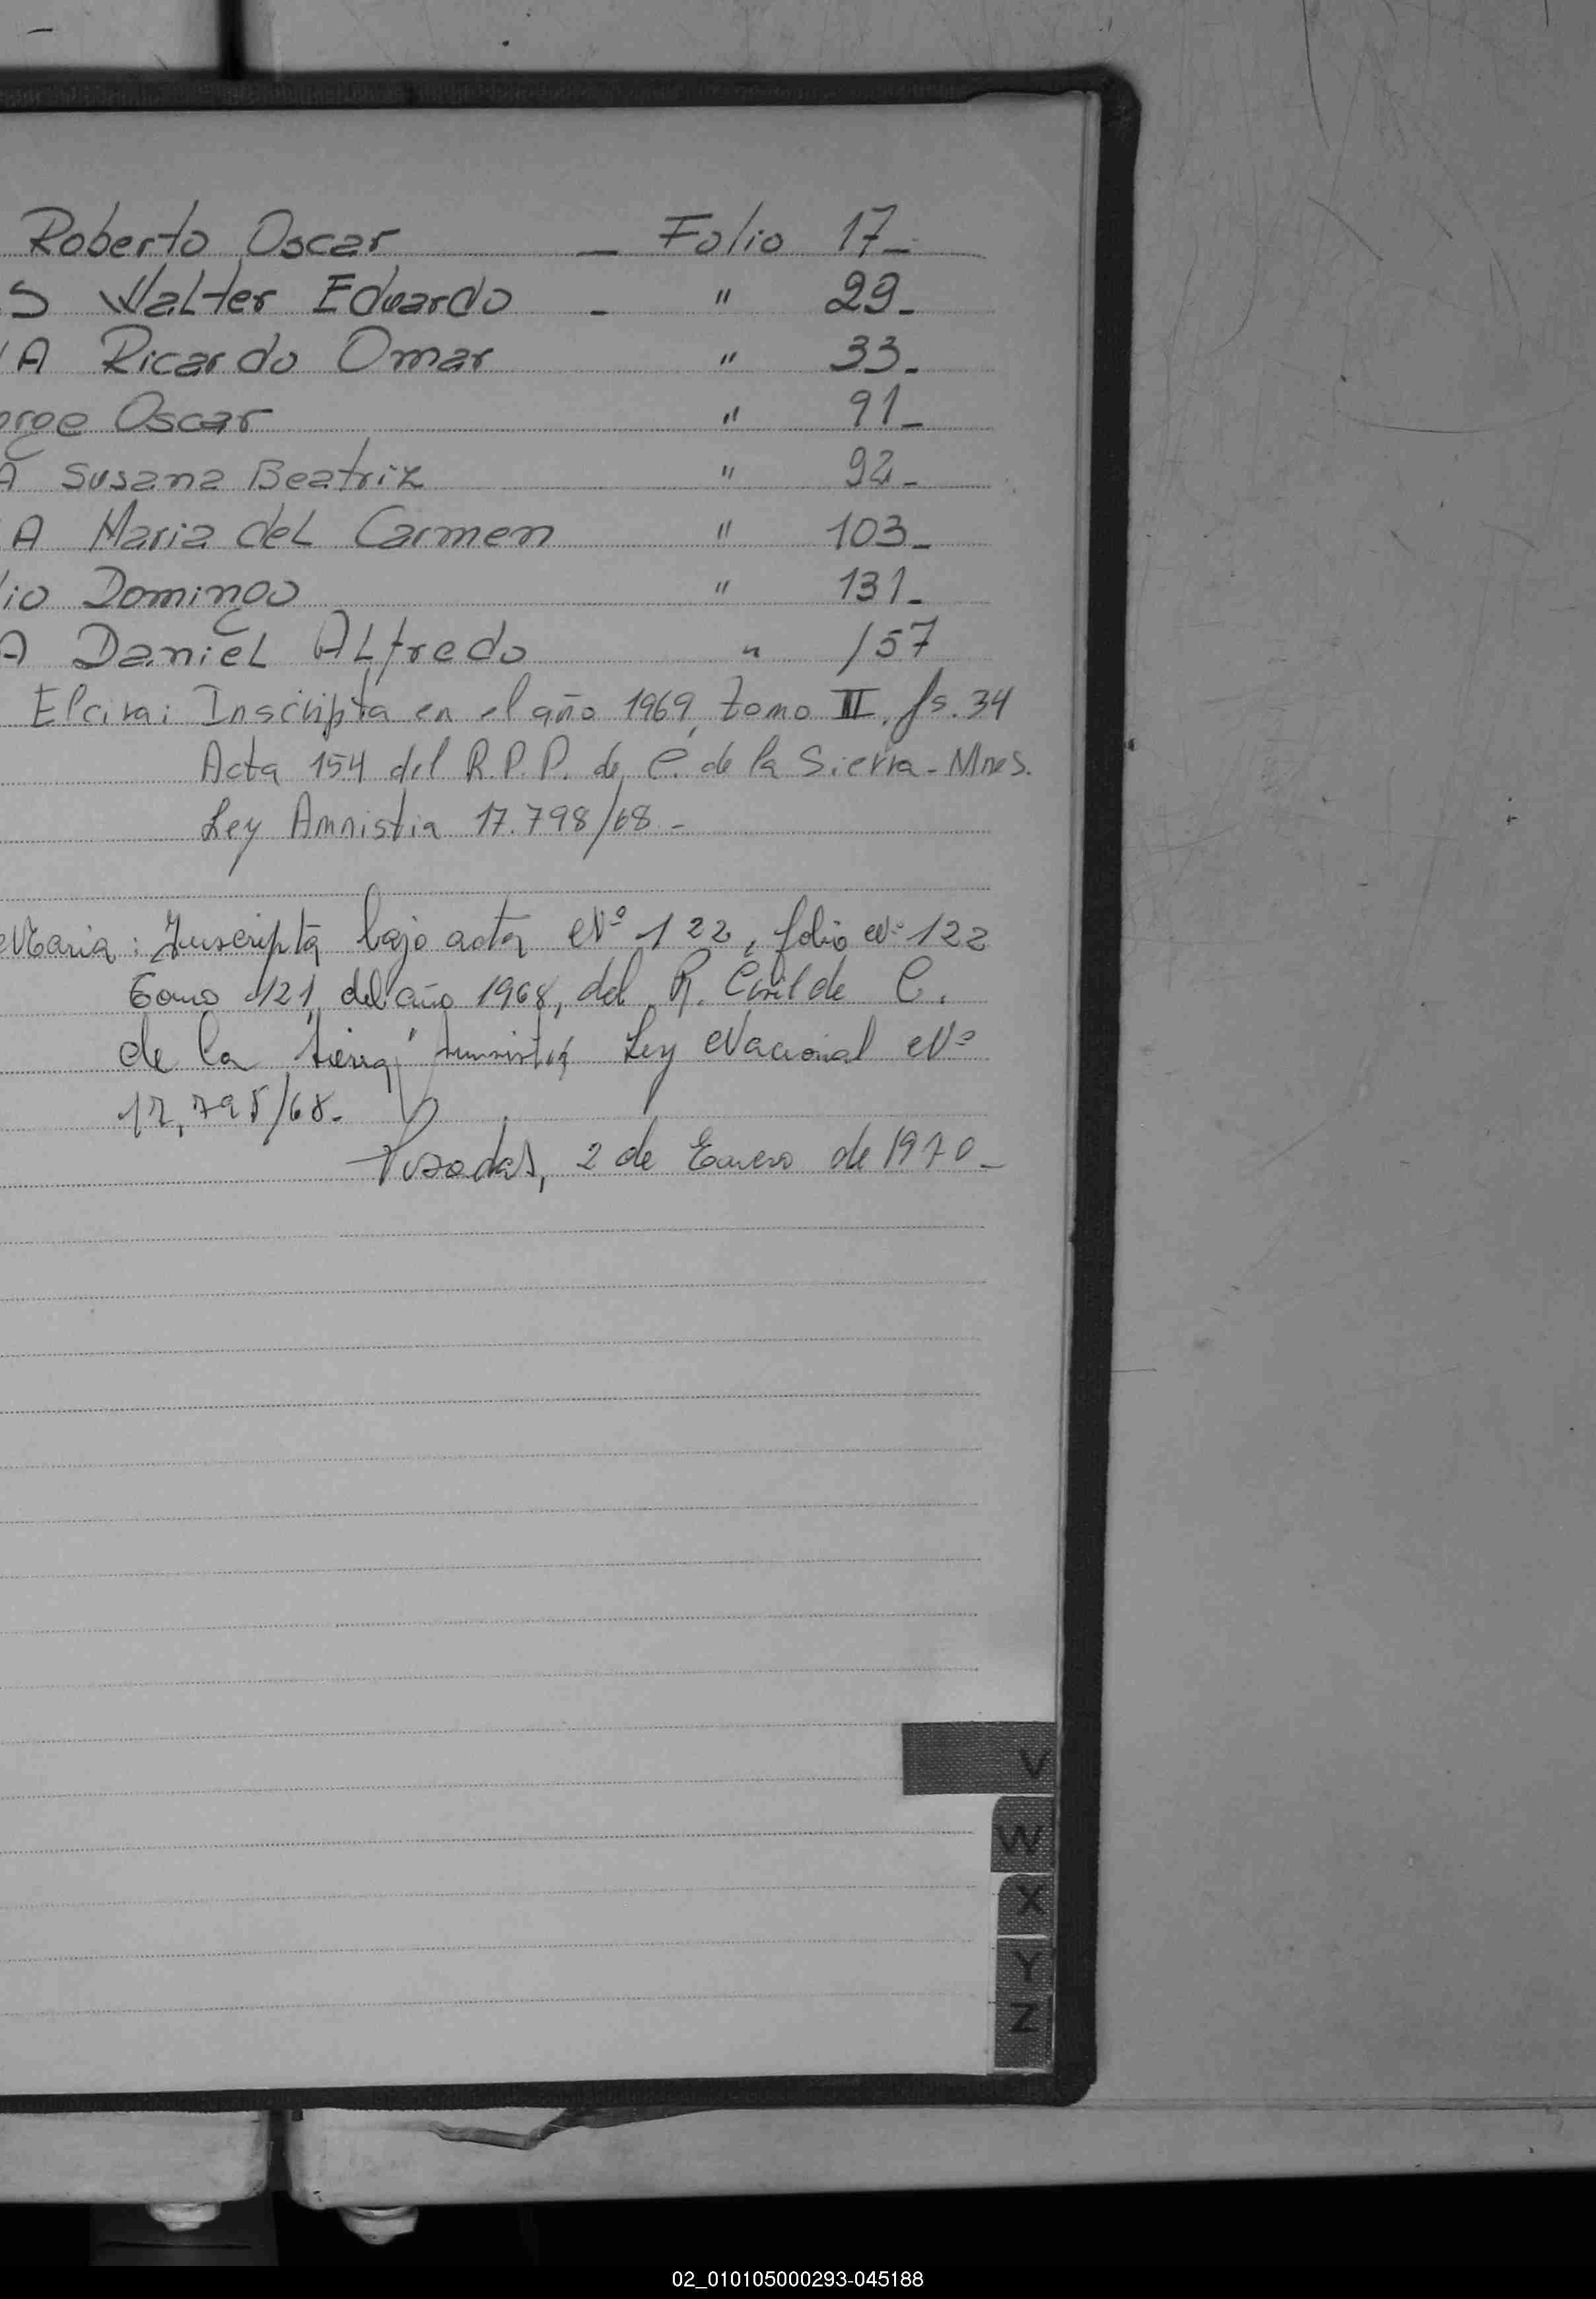 Roberto Oscar — Folio 17-
S Walter Eduardo - " 29-
A Ricardo Omar " 33-
orge Oscar " 91-
A Susana Beatriz " 92-
A Maria del Carmen " 103-
lio Domingo " 131-
A Daniel Alfredo " 157
Elcira: Inscripta en el año 1969, tomo III, fs. 34
Acta 154 del R.P.P. de C. de la Sierra - Mnes.
Ley Amnistia 17.798/68 -
Maria: Inscripta bajo acta Nº 122, folio Nº 122
Tomo 121, del año 1968, del R. Civil de C.
de la Sierra, Amnistia Ley Nacional Nº
17,795/68-
Posadas, 2 de Enero de 1970-
V
W
X
Y
Z
02_010105000293-045188